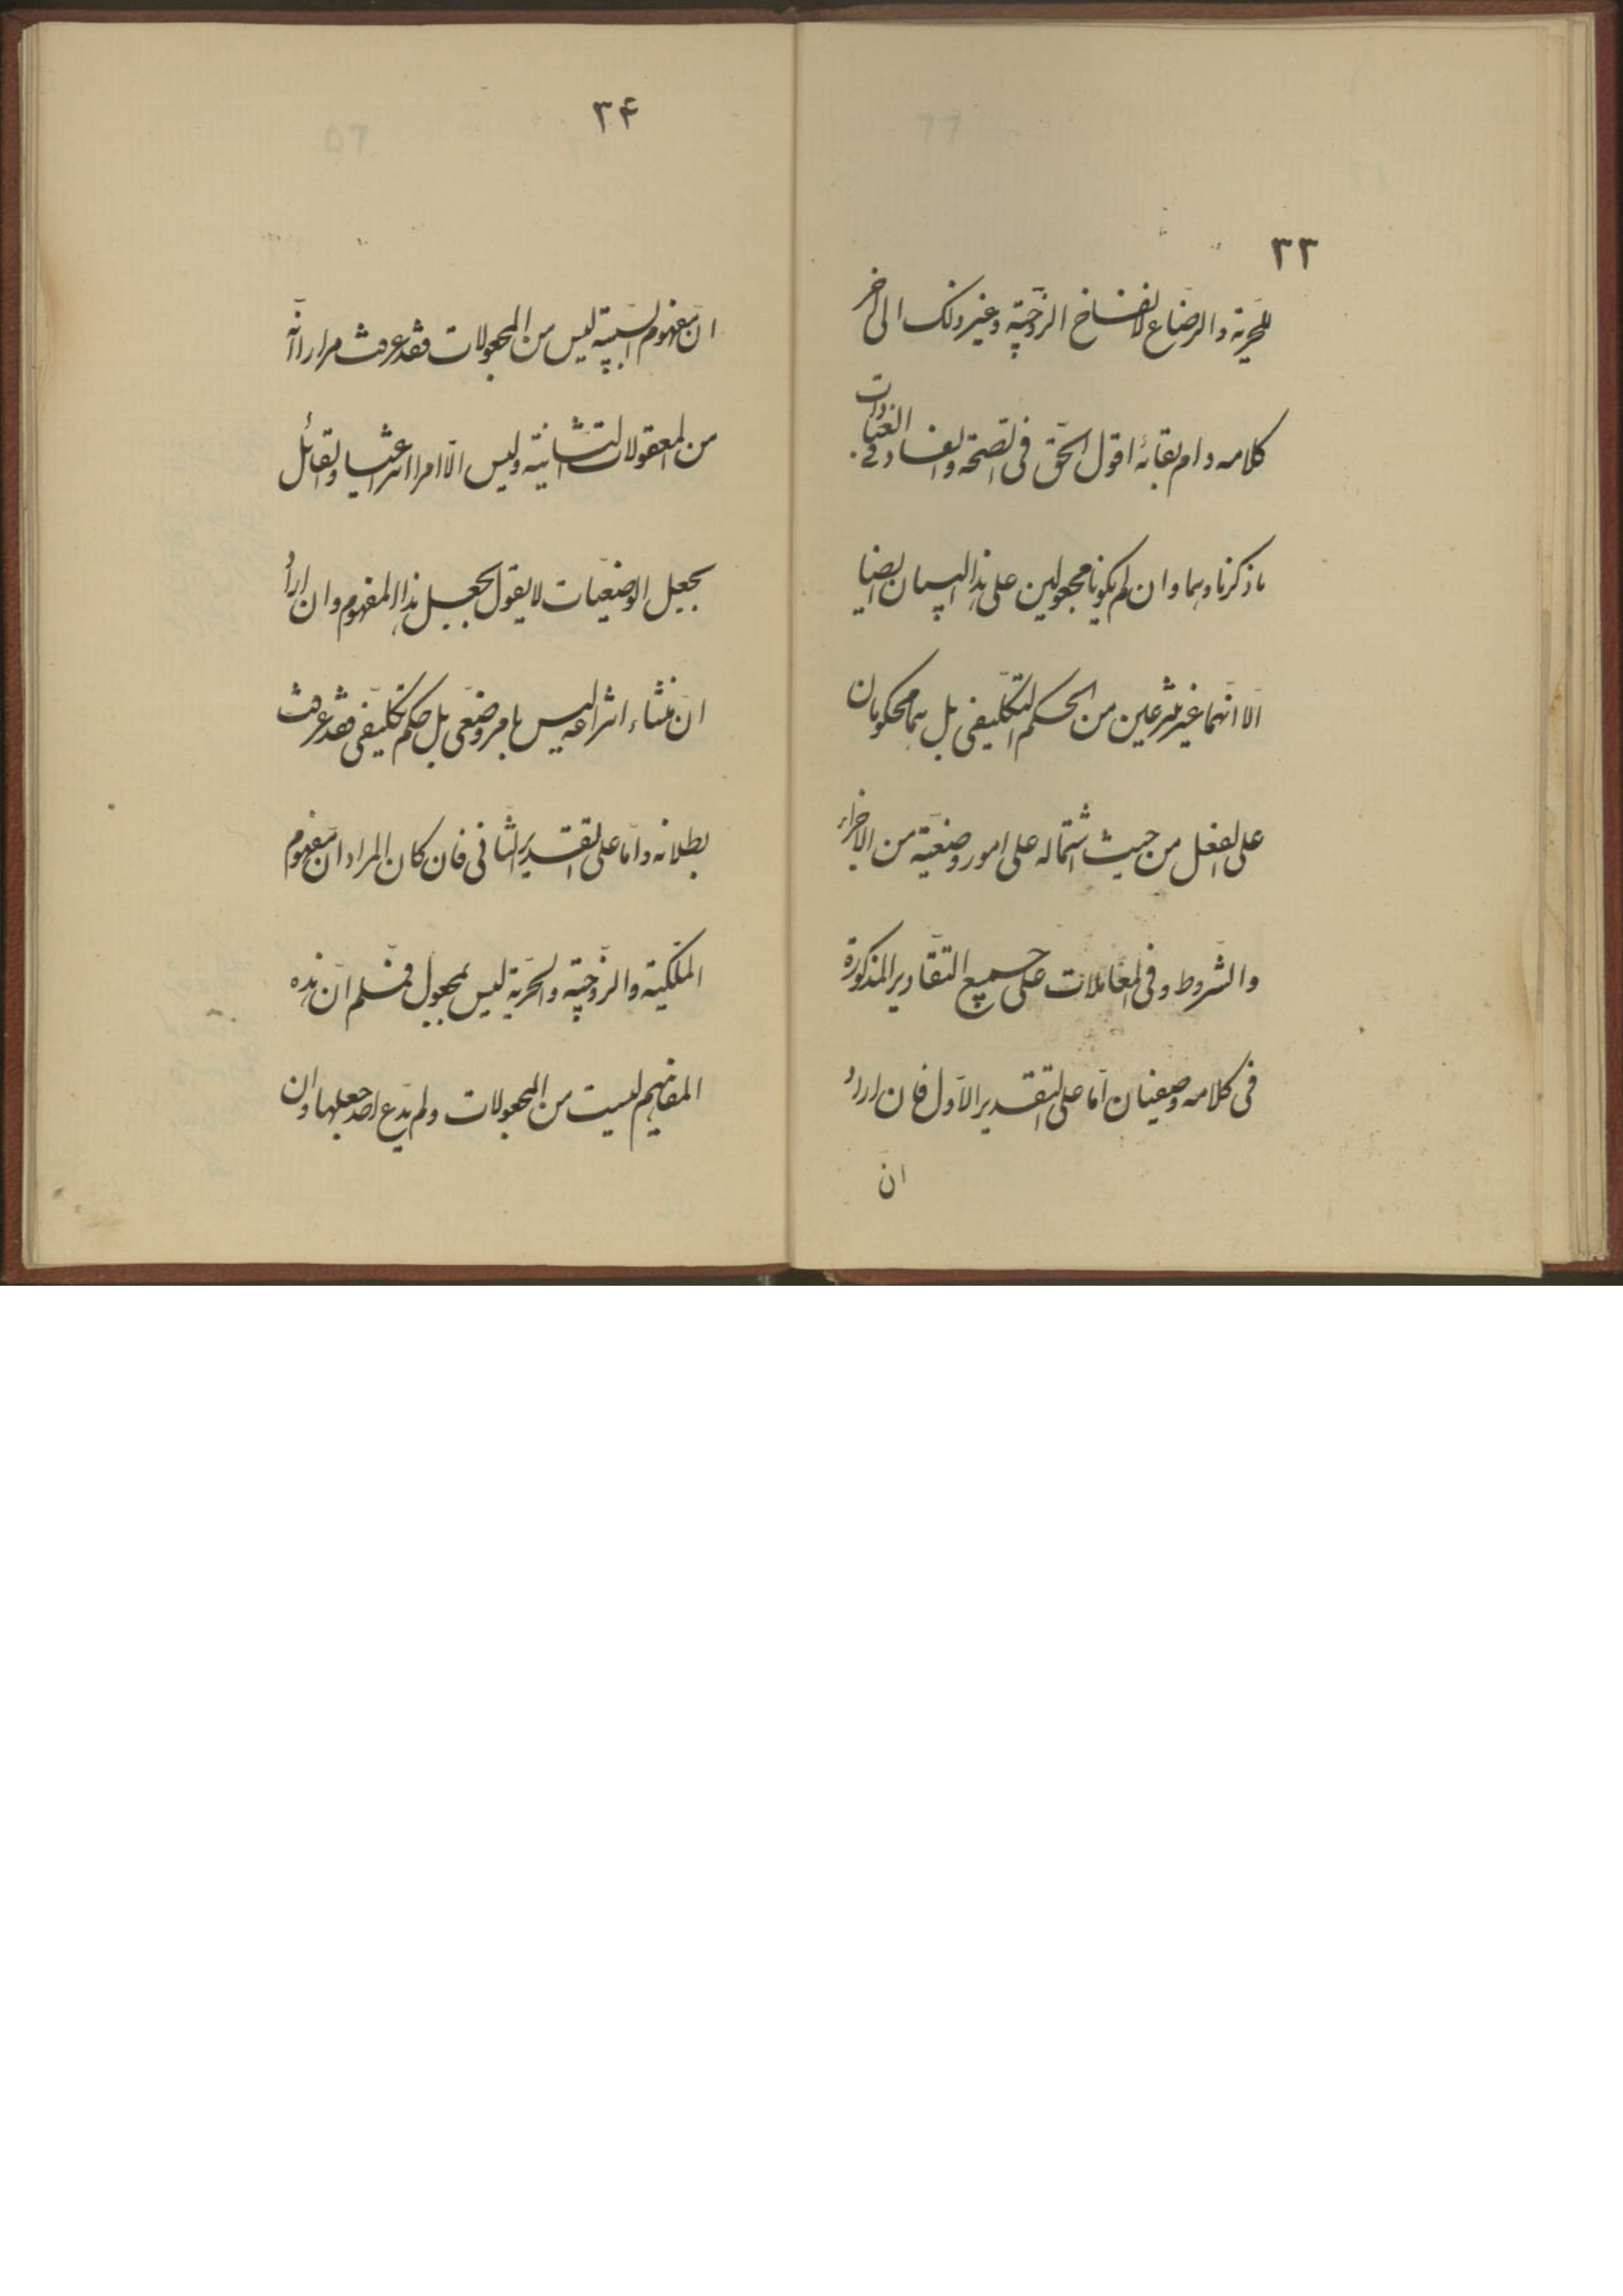 ٣٣
للحریة والرضاع لانفساخ الزّوجیّة وغیر ذلک الی آخر
کلامه دام بقائه اقول الحقّ فی الصّحة والفساد فی العبادات
ما ذکرنا وهما وان لم یکونا مجعولین علی هذا البیان ایضا
الّا انّهما غیر منتزعین من الحکم التّکلیفی بل هما محکومان
علی الفعل من حیث اشتماله علی امور وضعیّة من الاجزاء
والشّروط وفی المعاملات علی جمیع التّقادیر المذکورة
فی کلامه وضعیّان امّا علی التقدیر الاوّل فان اراد
انّ
٣۴
انّ مفهوم السّببیّة لیس من المجعولات فقد عرفت مرارا انّه
من المعقولات الثّانیّة ولیس الّا امرا انتزاعیّا والقائل
بجعل الوضعیّات لا یقول بجعل هذا المفهوم وان اراد
انّ منشاء انتزاعه لیس بامر وضعی بل حکم تکلیفی فقد عرفت
بطلانه وامّا علی التقدیر الثّانی فان کان المراد انّ مفهوم
الملکیّة والزّوجیّة والحرّیّة لیس بمجعول فمسلم انّ هذه
المفاهیم لیست من المجعولات ولم یدّع احد جعلها وان